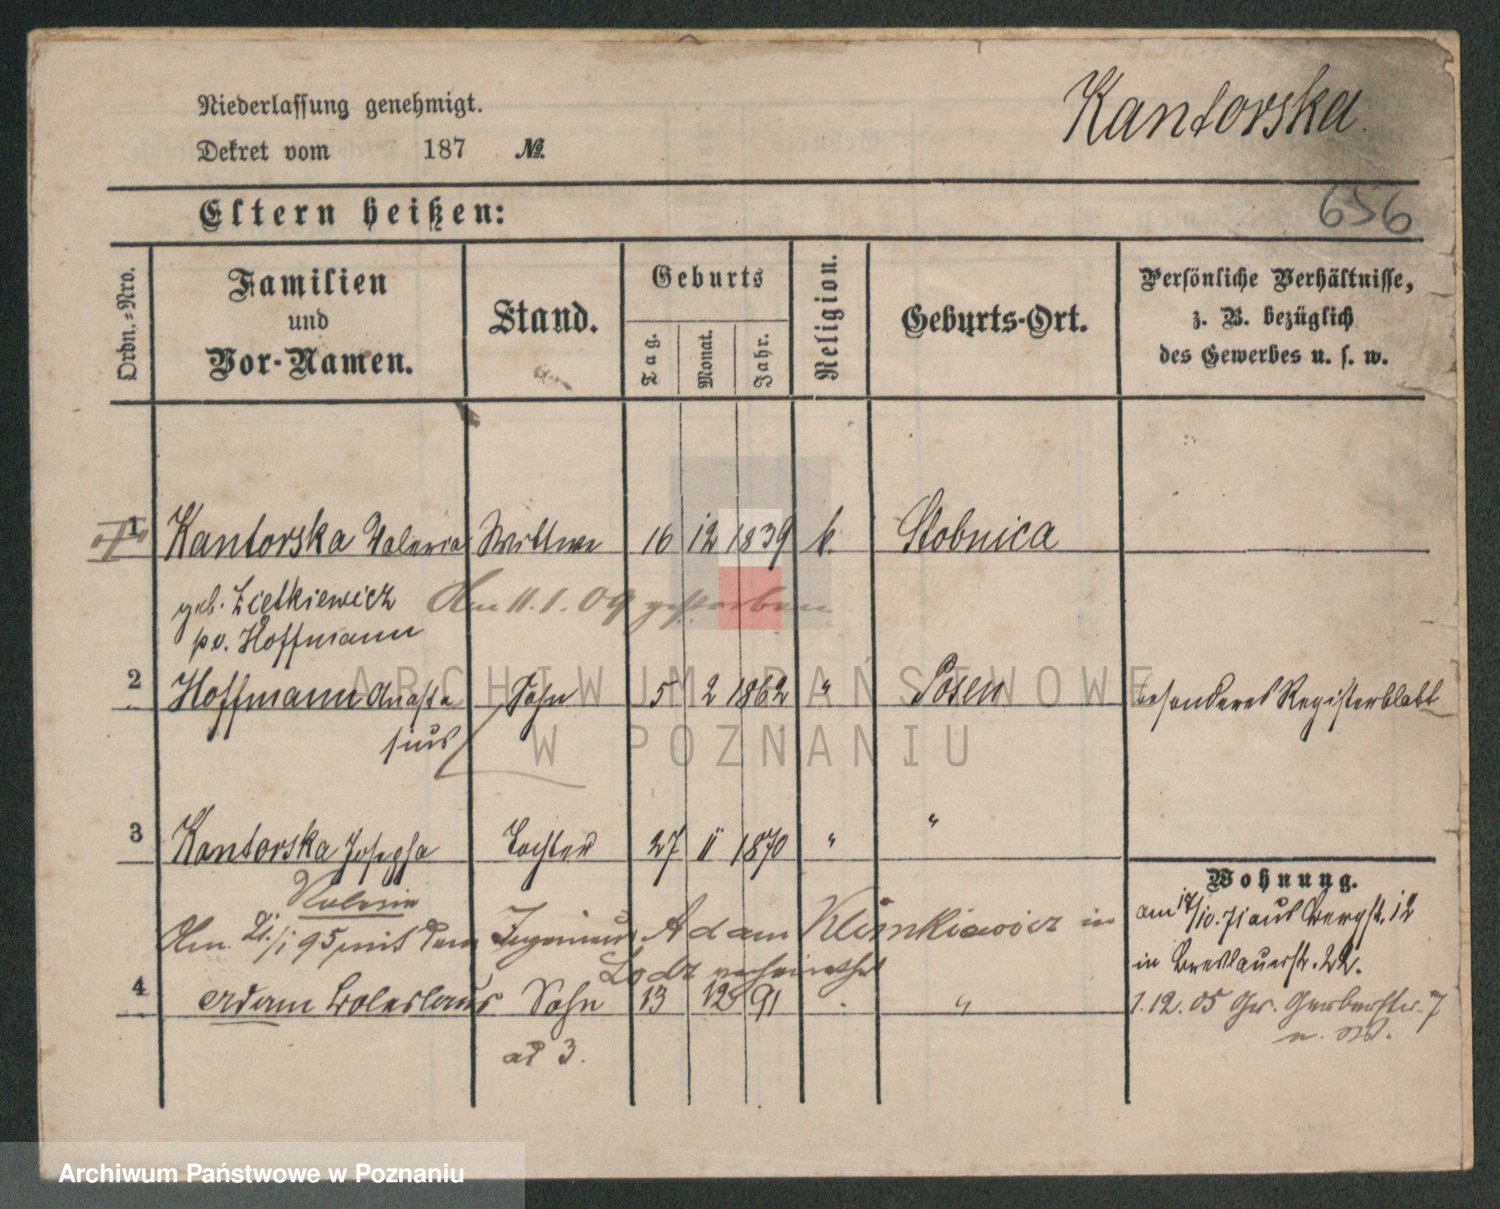 Niederlassung genehmigt.
Kantorska
Dekret vom 187 No.
Eltern heißen:
656
Ordn.-Nro.
Familien und Vor-Namen.
Stand.
Geburts
Tag. Monat. Jahr.
Religion.
Geburts-Ort.
Persönliche Verhältnisse,
z. B. bezüglich
des Gewerbes u. s. w.
1 Kantorska Valeria Wittwe 16 12 1839 k. Stobnica
geb. Zietkiewicz Am 11.1.09 gestorben
pv. Hoffmann
2 Hoffmann Anasta Sohn 5 2 1862 " Posen besonderes Registerblatt
sius
3 Kantorska Josepha Tochter 27 11 1870 " "
Valerie
Wohnung.
am 17/10. 71 aus Bergstr. 12
Am 21./1 95 mit dem Ingenieur Adam Klimkiewicz in
Lodz verheirathet
in Breslauerstr. 22.
4 Adam Boleslaus Sohn 13 12 91 " "
1.12.05 Gr. Gerberstr. 7
ad 3.
ARCHIWUM PAŃSTWOWE
W POZNANIU
Archiwum Państwowe w Poznaniu